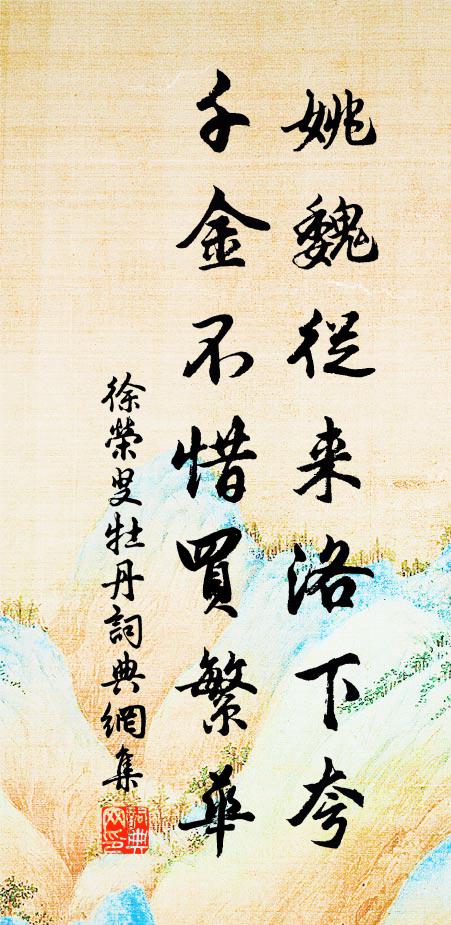 姚魏從来洛下夸
千金不惜買繁華
徐榮叟牡丹詞典網集
詞典网印